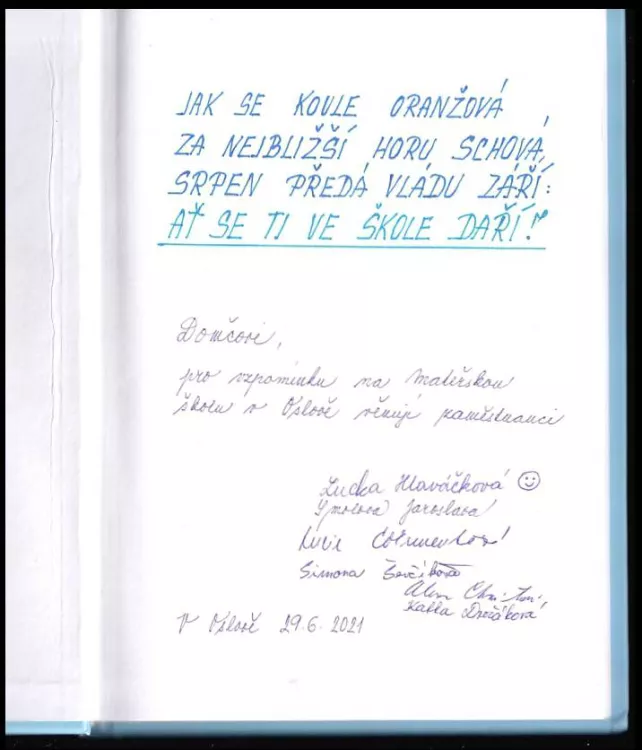 JAK SE KOULE ORANŽOVÁ
ZA NEJBLIŽŠÍ HORU SCHOVÁ,
SRPEN PŘEDÁ VLÁDU ZÁŘÍ:
AŤ SE TI VE ŠKOLE DAŘÍ!
Domčovi,
pro vzpomínku na Mateřskou
školu v Oslově věnují zaměstnanci
Lucka Hlaváčková ☺
Jaroslava
Lucie
Simona Ševčíková
Katka Dvořáková
V Oslově 29.6.2021